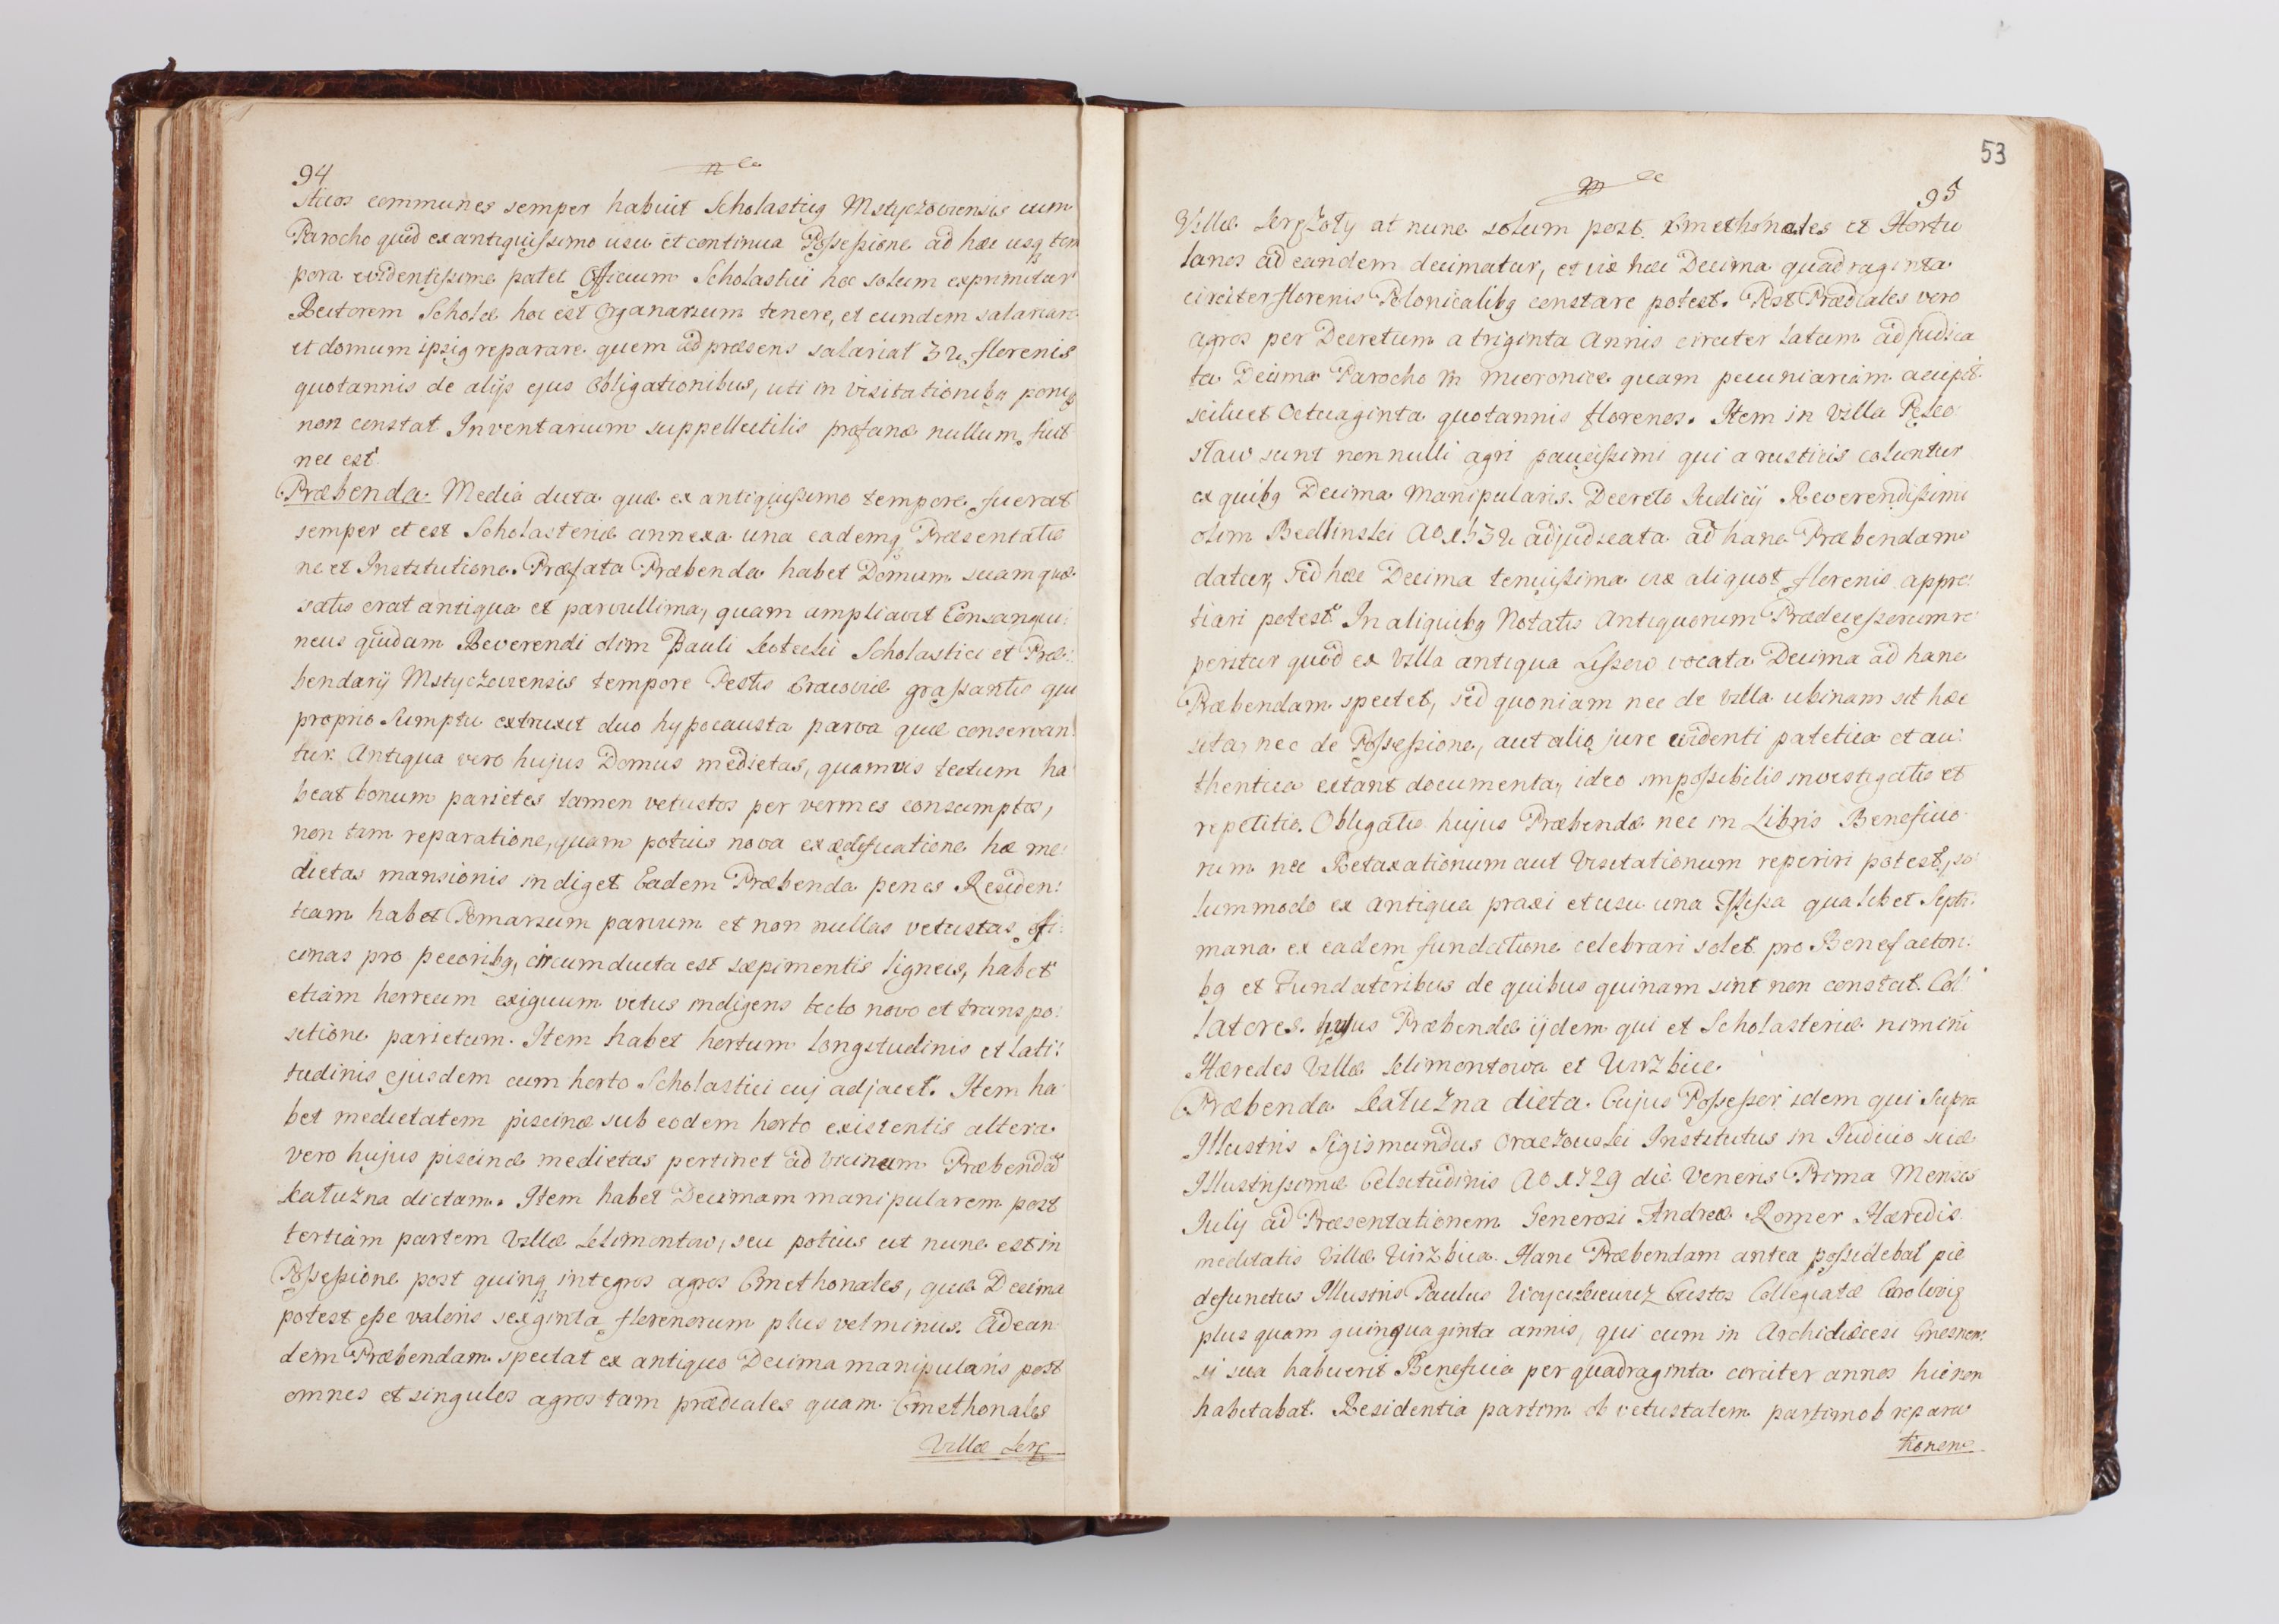 94
sticos communes semper habuit Scholasticq Mstyczoviensis cum
Parocho quod ex antiquissimo usu et continua Possessione ad hæc usq tem
pora evidentissime patet Officium Scholastici hoc solum exprimitur
Rectorem Scholæ hoc est Organarium tenere, et eundem salariare
et domum ipsiq reparare quem ad præsens salariat 32 florenis
quotannis de alijs ejus obligationibus, uti in visitationibq
non constat Inventarium suppellectilis profanæ nullum fuit
nec est.
Præbenda Media dicta quæ ex antiquissimo tempore fuerat
semper et est Scholasteriæ annexa una eademq Præsentatio
ne et Institutione. Præfata Præbenda habet Domum suam quæ
satis erat antiqua et parvullima, quam ampliavit Consangui:
neus quidam Reverendi olim Pauli Scholastici et Præ:
bendarij Mstyczoviensis tempore Pestis Cracoviæ grassantis qui
proprio sumptu extruxit duo hypocausta parva quæ conservan:
tur. Antiqua vero hujus Domus medietas, quamvis tectum ha
beat bonum parietes tamen vetustos per vermes consumptos,
non tam reparatione, quam potius nova exædificatione hæ me:
dietas mansionis indiget Eadem Præbenda penes Residen:
tiam habet Pomarium parvum et non nullas vetustas offi:
cinas pro pecoribq, circumducta est sæpimentis ligneis, habet
etiam horreum exiguum vetus indigens tecto novo et transpo:
sitione parietum. Item habet hortum longitudinis et lati:
tudinis ejusdem cum horto Scholastici cuj adjacet. Item ha
bet medietatem piscinæ sub eodem horto existentis altera
vero hujus piscinæ medietas pertinet ad vicinam Præbendã
Kałużna dictam. Item habet Decimam manipularem post
tertiam partem Villæ Klimontow, seu potius ut nunc est in
Possessione post quinq integros agros Cmethonales, quæ Decima
potest esse valoris sexginta florenorum plus vel minus. Ad ean
dem Præbendam spectat ex antiquo Decima manipularis post
omnes et singulos agros tam prædiales quam Cmethonales
Villæ
53
95
Villæ at nunc solum post Cmethonales et Hortu
lanos ad eandem decimatur, et vix hæc Decima quadraginta
circiter florenis Polonicalibq constare potest. Post Prædiales vero
agros per Decretum a triginta annis circiter latum adjudica
ta Decima Parocho in Mieronice quam pecuniariam accipit
scilicet Octuaginta quotannis florenos. Item in Villa
sław sunt nonnulli agri paucissimi qui a rusticis coluntur
ex quibq Decima Manipularis. Decreto Judicij Reverendissimi
olim adjudicata ad hanc Præbendam
datur, sed hæc Decima tenuissima vix aliquot florenis appre:
tiari potest. In aliquibq Notatis Antiquorum Prædecessorum re
peritur quod ex Villa antiqua Lissow vocata Decima ad hanc
Præbendam spectet, sed quoniam nec de Villa ubinam sit hæc
sita, nec de Possessione, aut alio jure evidenti patetica et au:
thentica extant documenta, ideo impossibilis investigatio et
repetitio. Obligatio hujus Præbendæ nec in Libris Beneficio
rum nec Retaxationum aut Visitationum reperiri potest, so:
lummodo ex antiqua praxi et usu una Missa qualibet Septi:
mana ex eadem fundatione celebrari solet pro Benefactori:
bq et Fundatoribus de quibus quinam sint non constat. Col:
latores hujus Præbendæ ijdem qui et Scholasteriæ nimirũ
Hæredes Villæ Klimontowa et Wirzbice.
Præbenda Kałużna dicta. Cujus Possessor idem qui Supra
Illustris Sigismundus Institutus in Judicio suæ
Illustrissimæ Celsitudinis Ao 1729 die Veneris Prima Mensis
Julij ad Præsentationem Generosi Andreæ Romer Hæredis
medietatis Villæ Wirzbica. Hanc Præbendam antea possidebat piè
defunctus Illustris Paulus Custos Collegiatæ
plus quam quinquaginta annis, qui cum in Archidiæcesi Gnesnen:
si sua habuerit Beneficia per quadraginta circiter annos hic non
habitabat. Residentia partim ob vetustatem partim ob repara
tionem